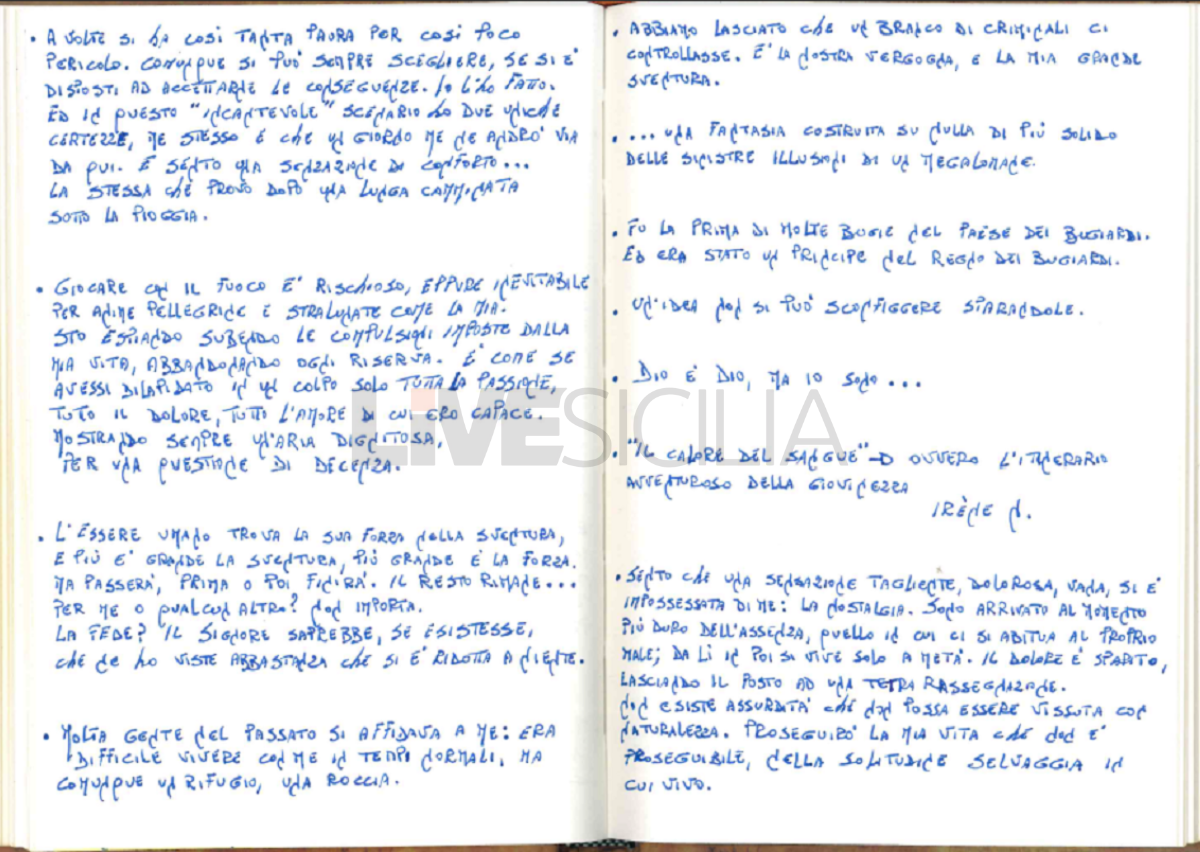 • A VOLTE SI HA COSÌ TANTA PAURA PER COSÌ POCO
PERICOLO. COMUNQUE SI PUÒ SEMPRE SCEGLIERE, SE SI E'
DISPOSTI AD ACCETTARNE LE CONSEGUENZE. IO L'HO FATTO.
ED IN QUESTO "INCANTEVOLE" SCENARIO HO DUE UNICHE
CERTEZZE, ME STESSO E CHE UN GIORNO ME NE ANDRO' VIA
DA QUI. E SENTO UNA SENSAZIONE DI CONFORTO...
LA STESSA CHE PROVO DOPO UNA LUNGA CAMMINATA
SOTTO LA PIOGGIA.
• GIOCARE CON IL FUOCO E' RISCHIOSO, EPPURE INEVITABILE
PER ANIME PELLEGRINE E STRALUNATE COME LA MIA.
STO ESPIANDO SUBENDO LE COMPULSIONI IMPOSTE DALLA
MIA VITA, ABBANDONANDO OGNI RISERVA. E' COME SE
AVESSI DILAPIDATO IN UN COLPO SOLO TUTTA LA PASSIONE,
TUTTO IL DOLORE, TUTTO L'AMORE DI CUI ERO CAPACE.
MOSTRANDO SEMPRE UN'ARIA DIGNITOSA,
PER UNA QUESTIONE DI DECENZA.
• L'ESSERE UMANO TROVA LA SUA FORZA NELLA SVENTURA,
E PIÙ E' GRANDE LA SVENTURA, PIÙ GRANDE E' LA FORZA.
MA PASSERA', PRIMA O POI FINIRA'. IL RESTO RIMANE...
PER ME O QUALCUN ALTRO? NON IMPORTA.
LA FEDE? IL SIGNORE SAPREBBE, SE ESISTESSE,
CHE NE HO VISTE ABBASTANZA CHE SI E' RIDOTTA A NIENTE.
• MOLTA GENTE NEL PASSATO SI AFFIDAVA A ME: ERA
DIFFICILE VIVERE CON ME IN TEMPI NORMALI, MA
COMUNQUE UN RIFUGIO, UNA ROCCIA.
• ABBIAMO LASCIATO CHE UN BRANCO DI CRIMINALI CI
CONTROLLASSE. E' LA NOSTRA VERGOGNA, E LA MIA GRANDE
SVENTURA.
• ... UNA FANTASIA COSTRUITA SU NULLA DI PIÙ SOLIDO
DELLE SINISTRE ILLUSIONI DI UN MEGALOMANE.
• FU LA PRIMA DI MOLTE BUGIE NEL PAESE DEI BUGIARDI.
ED ERA STATO UN PRINCIPE NEL REGNO DEI BUGIARDI.
• UN'IDEA NON SI PUÒ SCONFIGGERE SPARANDOLE.
• DIO E' DIO, MA IO SONO...
• "IL CALORE DEL SANGUE" → OVVERO L'ITINERARIO
AVVENTUROSO DELLA GIOVINEZZA
IRÈNE N.
• SENTO CHE UNA SENSAZIONE TAGLIENTE, DOLOROSA, VANA, SI E'
IMPOSSESSATA DI ME: LA NOSTALGIA. SONO ARRIVATO AL MOMENTO
PIÙ DURO DELL'ASSENZA, QUELLO IN CUI CI SI ABITUA AL PROPRIO
MALE; DA LÌ IN POI SI VIVE SOLO A METÀ. IL DOLORE E' SPARITO,
LASCIANDO IL POSTO AD UNA TETRA RASSEGNAZIONE.
NON ESISTE ASSURDITA' CHE NON POSSA ESSERE VISSUTA CON
NATURALEZZA. PROSEGUIRO' LA MIA VITA CHE NON E'
PROSEGUIBILE, NELLA SOLITUDINE SELVAGGIA IN
CUI VIVO.
LIVESICILIA